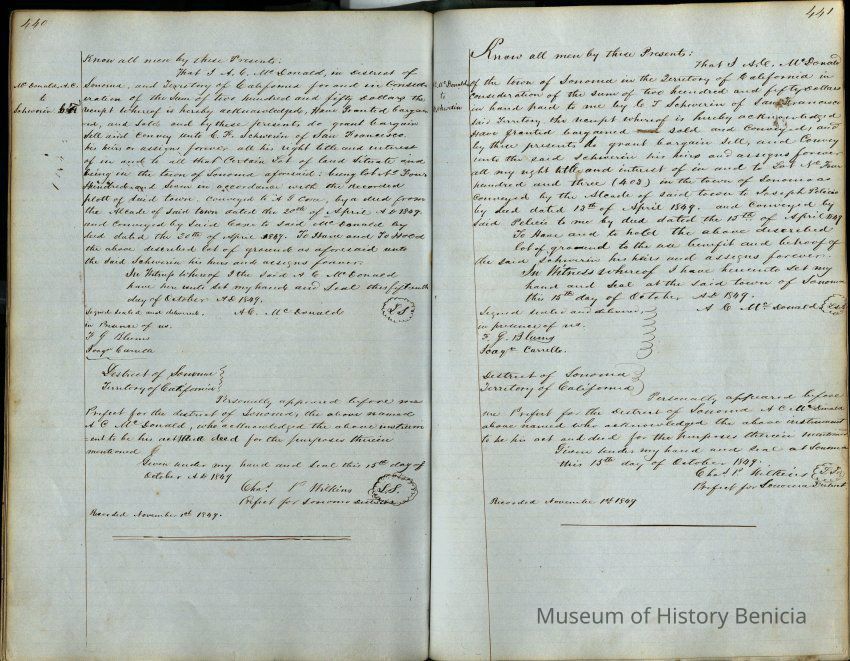 440
Know all men by these Presents:
That I A. C. McDonald, in district of
McDonald, A. C.
to
Schwerin
Sonoma, and Territory of California for and in Consid-
eration of the Sum of two hundred and fifty dollars the
receipt whereof is hereby acknowledged, Have Granted bargain
ed, and Sold and by these presents do grant bargain
Sell and Convey unto C. F. Schwerin of San Francisco
his heirs or assigns forever all his right title and interest
of in and to all that Certain Lot of land Situate and
being in the town of Sonoma aforesaid: being Lot No Four
Hundred and Seven in accordance with the Recorded
plott of Said town. Conveyed to by a deed from
the Alcade of Said town dated the 20th of April A D 1849.
and Conveyed by Said to Said McDonald by
deed dated the of April 1849. To Have and To Hold
the above described lot of ground as aforesaid unto
the Said Schwerin his heirs and assigns forever.
In Witness whereof I the Said A C McDonald
have here unto set my hand and Seal this fifteenth
day of October A D 1849.
Signed Sealed and delivered A. C. McDonald
in Presence of us. S.S.
F G Blums
Joaqn Carrillo
District of Sonoma
Territory of California
Personally appeared before me
Prefect for the district of Sonoma, the above named
A C McDonald, who acknowledged the above instrum
ent to be his act and deed for the purposes therein
mentioned
Given under my hand and Seal this 15th day of
October A D 1849
Chas. P Wilkins S.S.
Prefect for Sonoma District
Recorded November 1st 1849.
441
Know all men by these Presents:
That I A. C. McDonald
McDonald
to
Schwerin
of the town of Sonoma in the Territory of California in
Consideration of the Sum of two hundred and fifty Dollars
in hand paid to me by C F Schwerin of San Francisco
Territory the receipt whereof is hereby acknowledged
Have granted bargained sold and Conveyed, and
by these presents do grant bargain Sell, and Convey
unto the said Schwerin his heirs and assigns forever
all my right title and interest of in and to Lot No Four
hundred and three (403) in the town of Sonoma as
Conveyed by the Alcade of Said town to Joseph
by deed dated 13th of April 1849. and Conveyed by
Said to me by deed dated the 15th of April 1849
To Have and to hold the above described
lot of ground to the use benefit and behoof of
the said Schwerin his heirs and assigns forever.
In Witness whereof I have hereunto Set my
hand and Seal at the said town of Sonoma
this 15th day of October A D 1849.
Signed Sealed and delivered A C McDonald
in presence of us.
F. G. Blums
Joaqn Carrillo.
District of Sonoma
Territory of California
Personally appeared before
me Prefect for the District of Sonoma A C McDonald
above named who acknowledged the above instrument
to be his act and deed for the purposes therein mentioned
Given under my hand and Seal at Sonoma
this 15th day of October 1849.
Chas. P. Wilkins
Prefect for Sonoma District
Recorded November 1st 1849
Museum of History Benicia